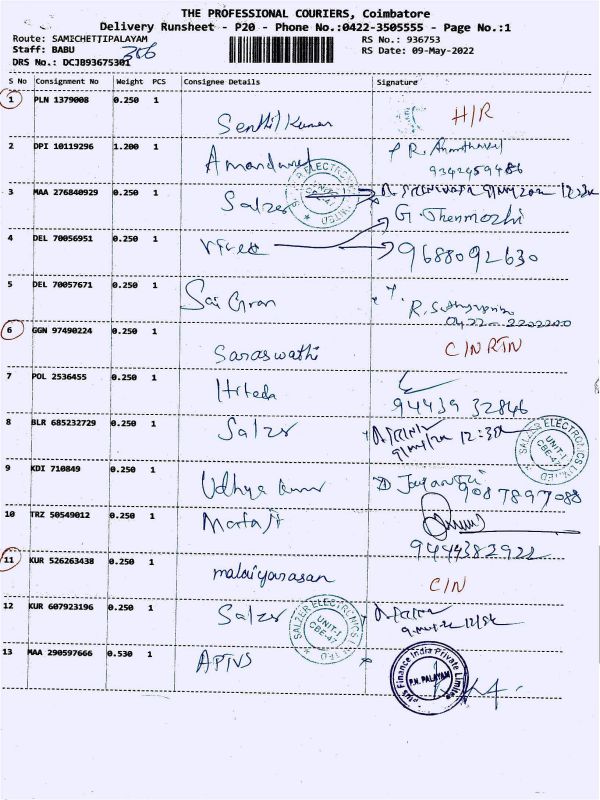 THE PROFESSIONAL COURIERS, Coimbatore
Delivery Runsheet - P20 - Phone No.:0422-3505555 - Page No.:1
Route: SAMICHETTIPALAYAM RS No.: 936753
Staff: BABU RS Date: 09-May-2022
DRS No.: DCJB93675301
S No Consignment No Weight PCS Consignee Details Signature
1 PLN 1379008 0.250 1
Senthil Kumar H/R
2 DPI 10119296 1.200 1
9342459486
3 MAA 276840929 0.250 1
Salzer
G. Thenmozhi
4 DEL 70056951 0.250 1
9688092630
5 DEL 70057671 0.250 1
Sai Giran
6 GGN 97490224 0.250 1
Saraswathi C/N RTN
7 POL 2536455 0.250 1
94439 32846
8 BLR 685232729 0.250 1
Salzer
SALZER ELECTRONICS LTD
UNIT-I
CBE-47
9 KDI 710849 0.250 1
Udhya Kumar
9087897088
10 TRZ 50549012 0.250 1
9444382922
11 KUR 526263438 0.250 1
malaiyarasan C/N
12 KUR 607923196 0.250 1
Salzer
SALZER ELECTRONICS LTD
UNIT-I
CBE-47
13 MAA 290597666 0.530 1
APTUS
Finance India Private Limited
P.N. PALAYAM